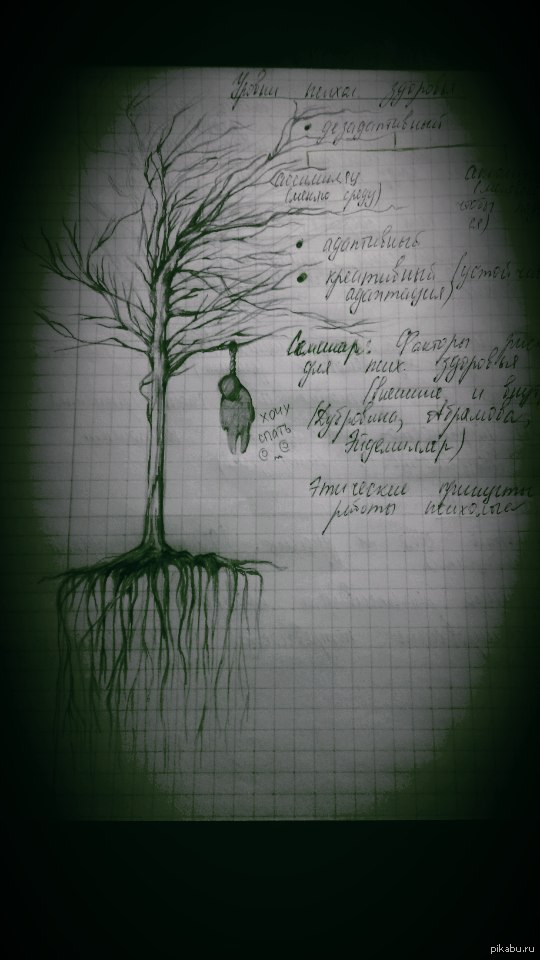 Уровни психол здоровья
дезадаптивный
ассимиляц
(меняю среду)
адаптивный
креативный (устойчи
адаптация)
Семинар: Факторы рис
для псих. здоровья
(внешние и внут
(Дубровина, Абрамова,
Эйдемиллер)
хочу
спать
Этические принципы
работы психолога
pikabu.ru